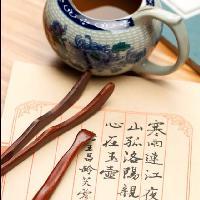 寒雨連江夜
山孤洛陽親
心在玉壺
王昌齡芙蓉